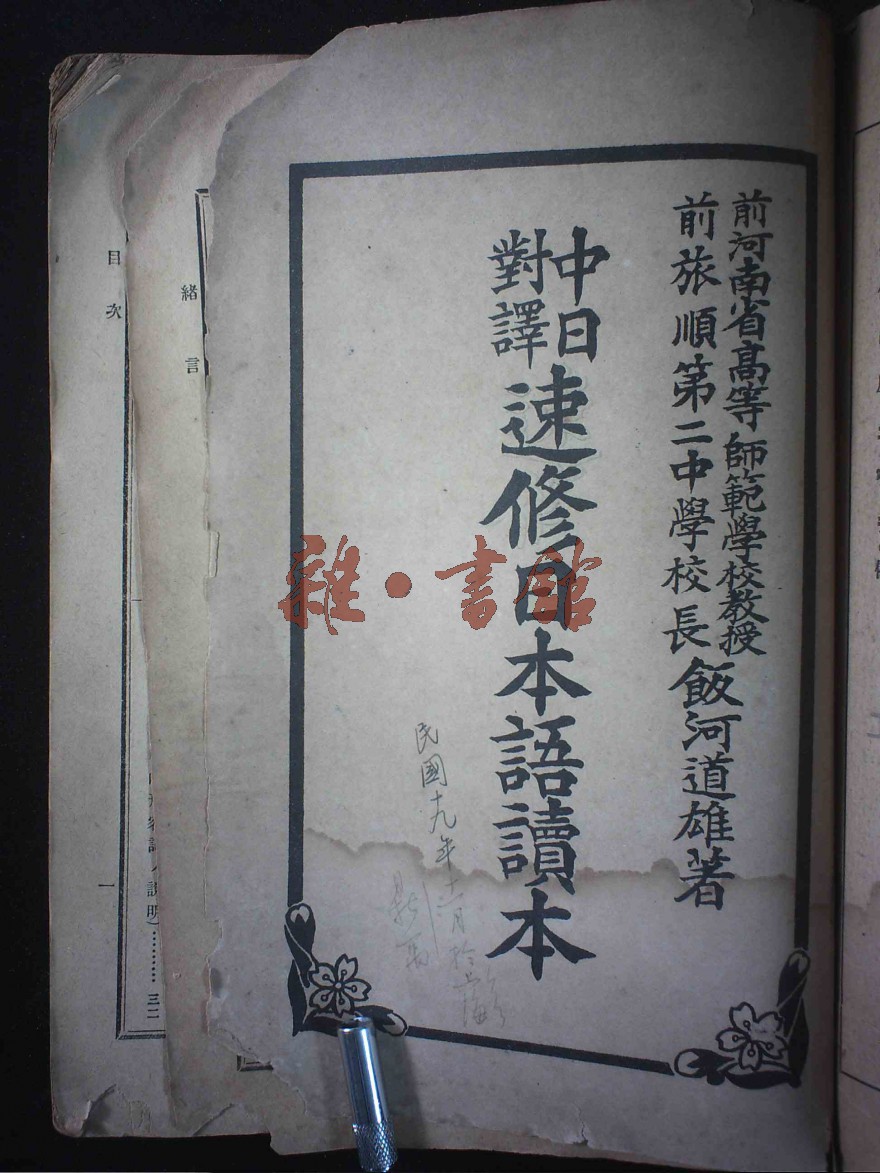 前河南省高等師範學校教授
前旅順第二中學校長 飯河道雄著
中日
對譯
速修日本語讀本
民國十九年十二月於上海
雜·書館
緒言
目次
說明)………三二
一